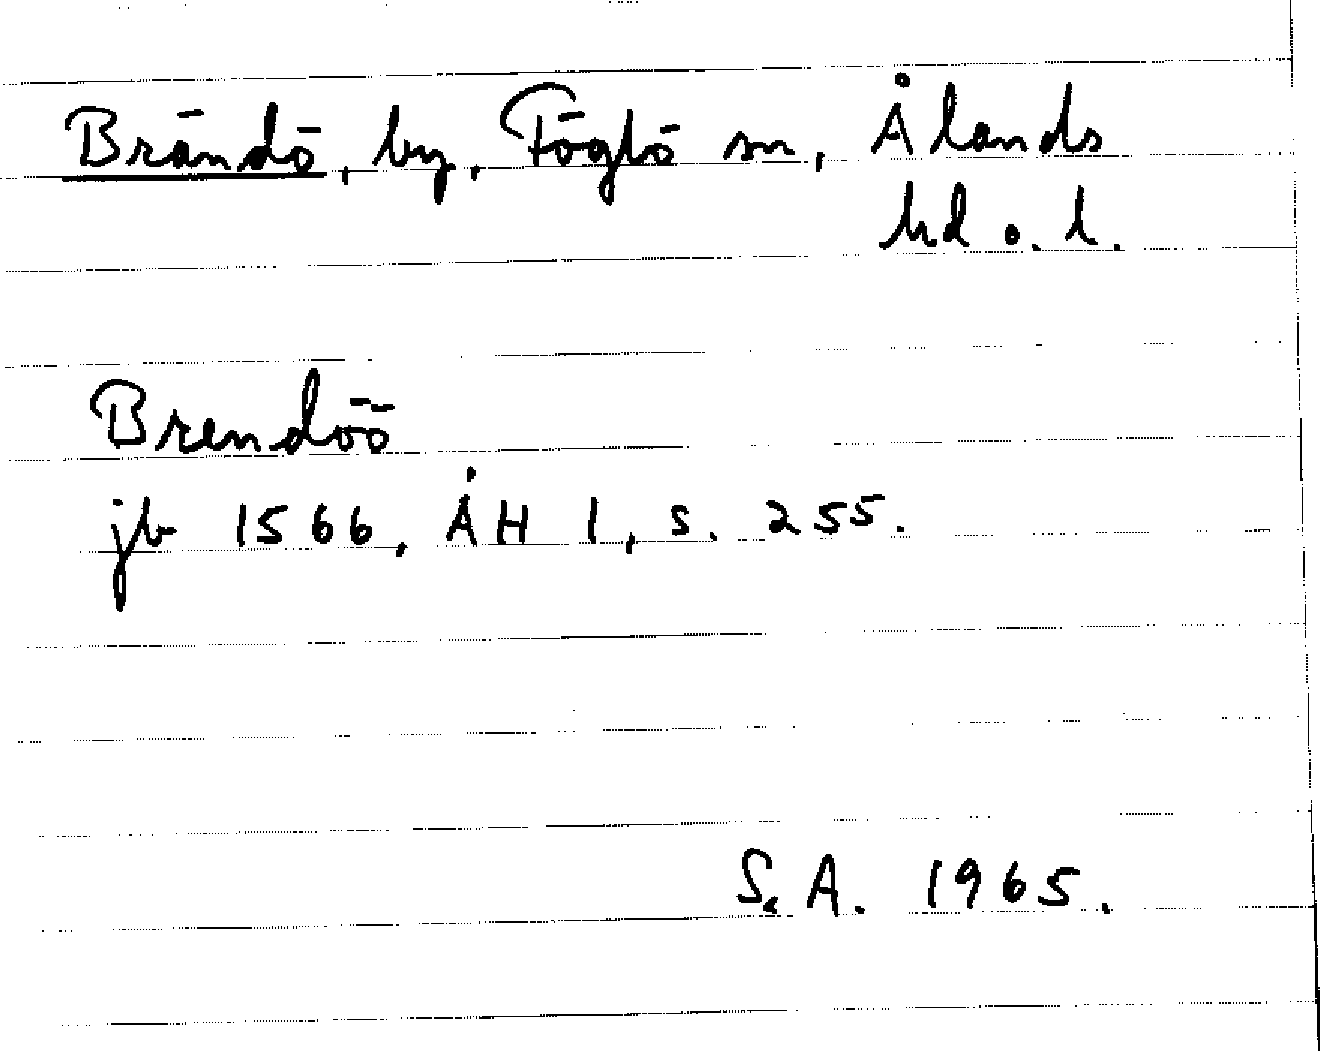 Brändö, by, Föglö sn, Ålands
hd o. l.
Brendöö
jb 1566, ÅH I, s. 255.
S.A. 1965.